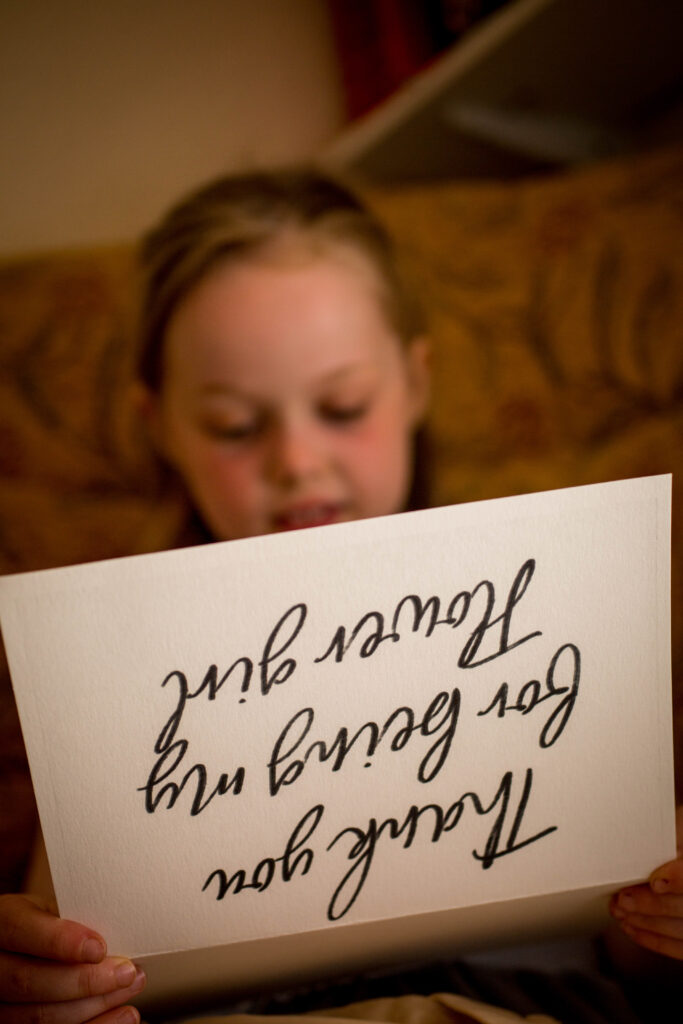 Thank you
for being my
flower girl